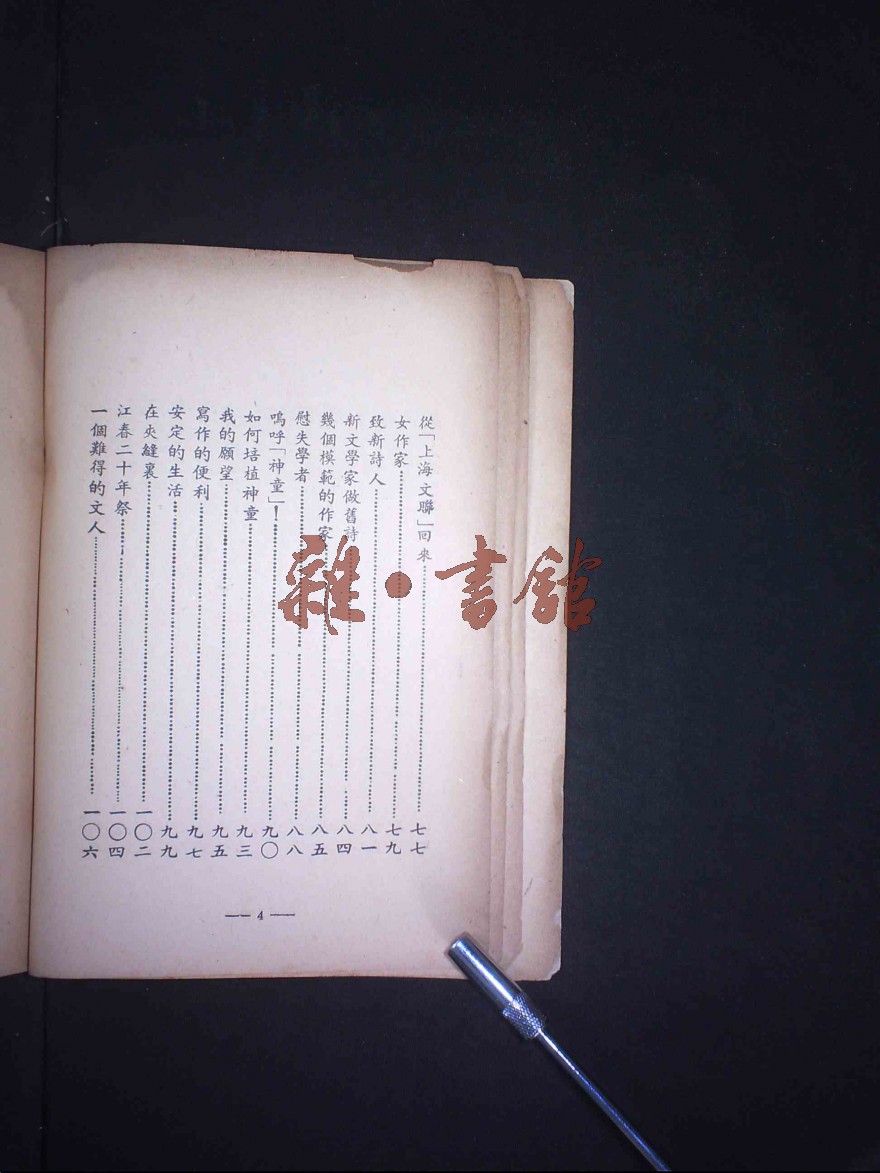 從「上海文聯」回來……七七
女作家……七九
致新詩人……八一
新文學家做舊詩……八四
幾個模範的作家……八五
慰失學者……八八
嗚呼「神童」！……九〇
如何培植神童……九三
我的願望……九五
寫作的便利……九七
安定的生活……九九
在夾縫裏……一〇二
江春二十年祭……一〇四
一個難得的文人……一〇六
— 4 —
雜·書館